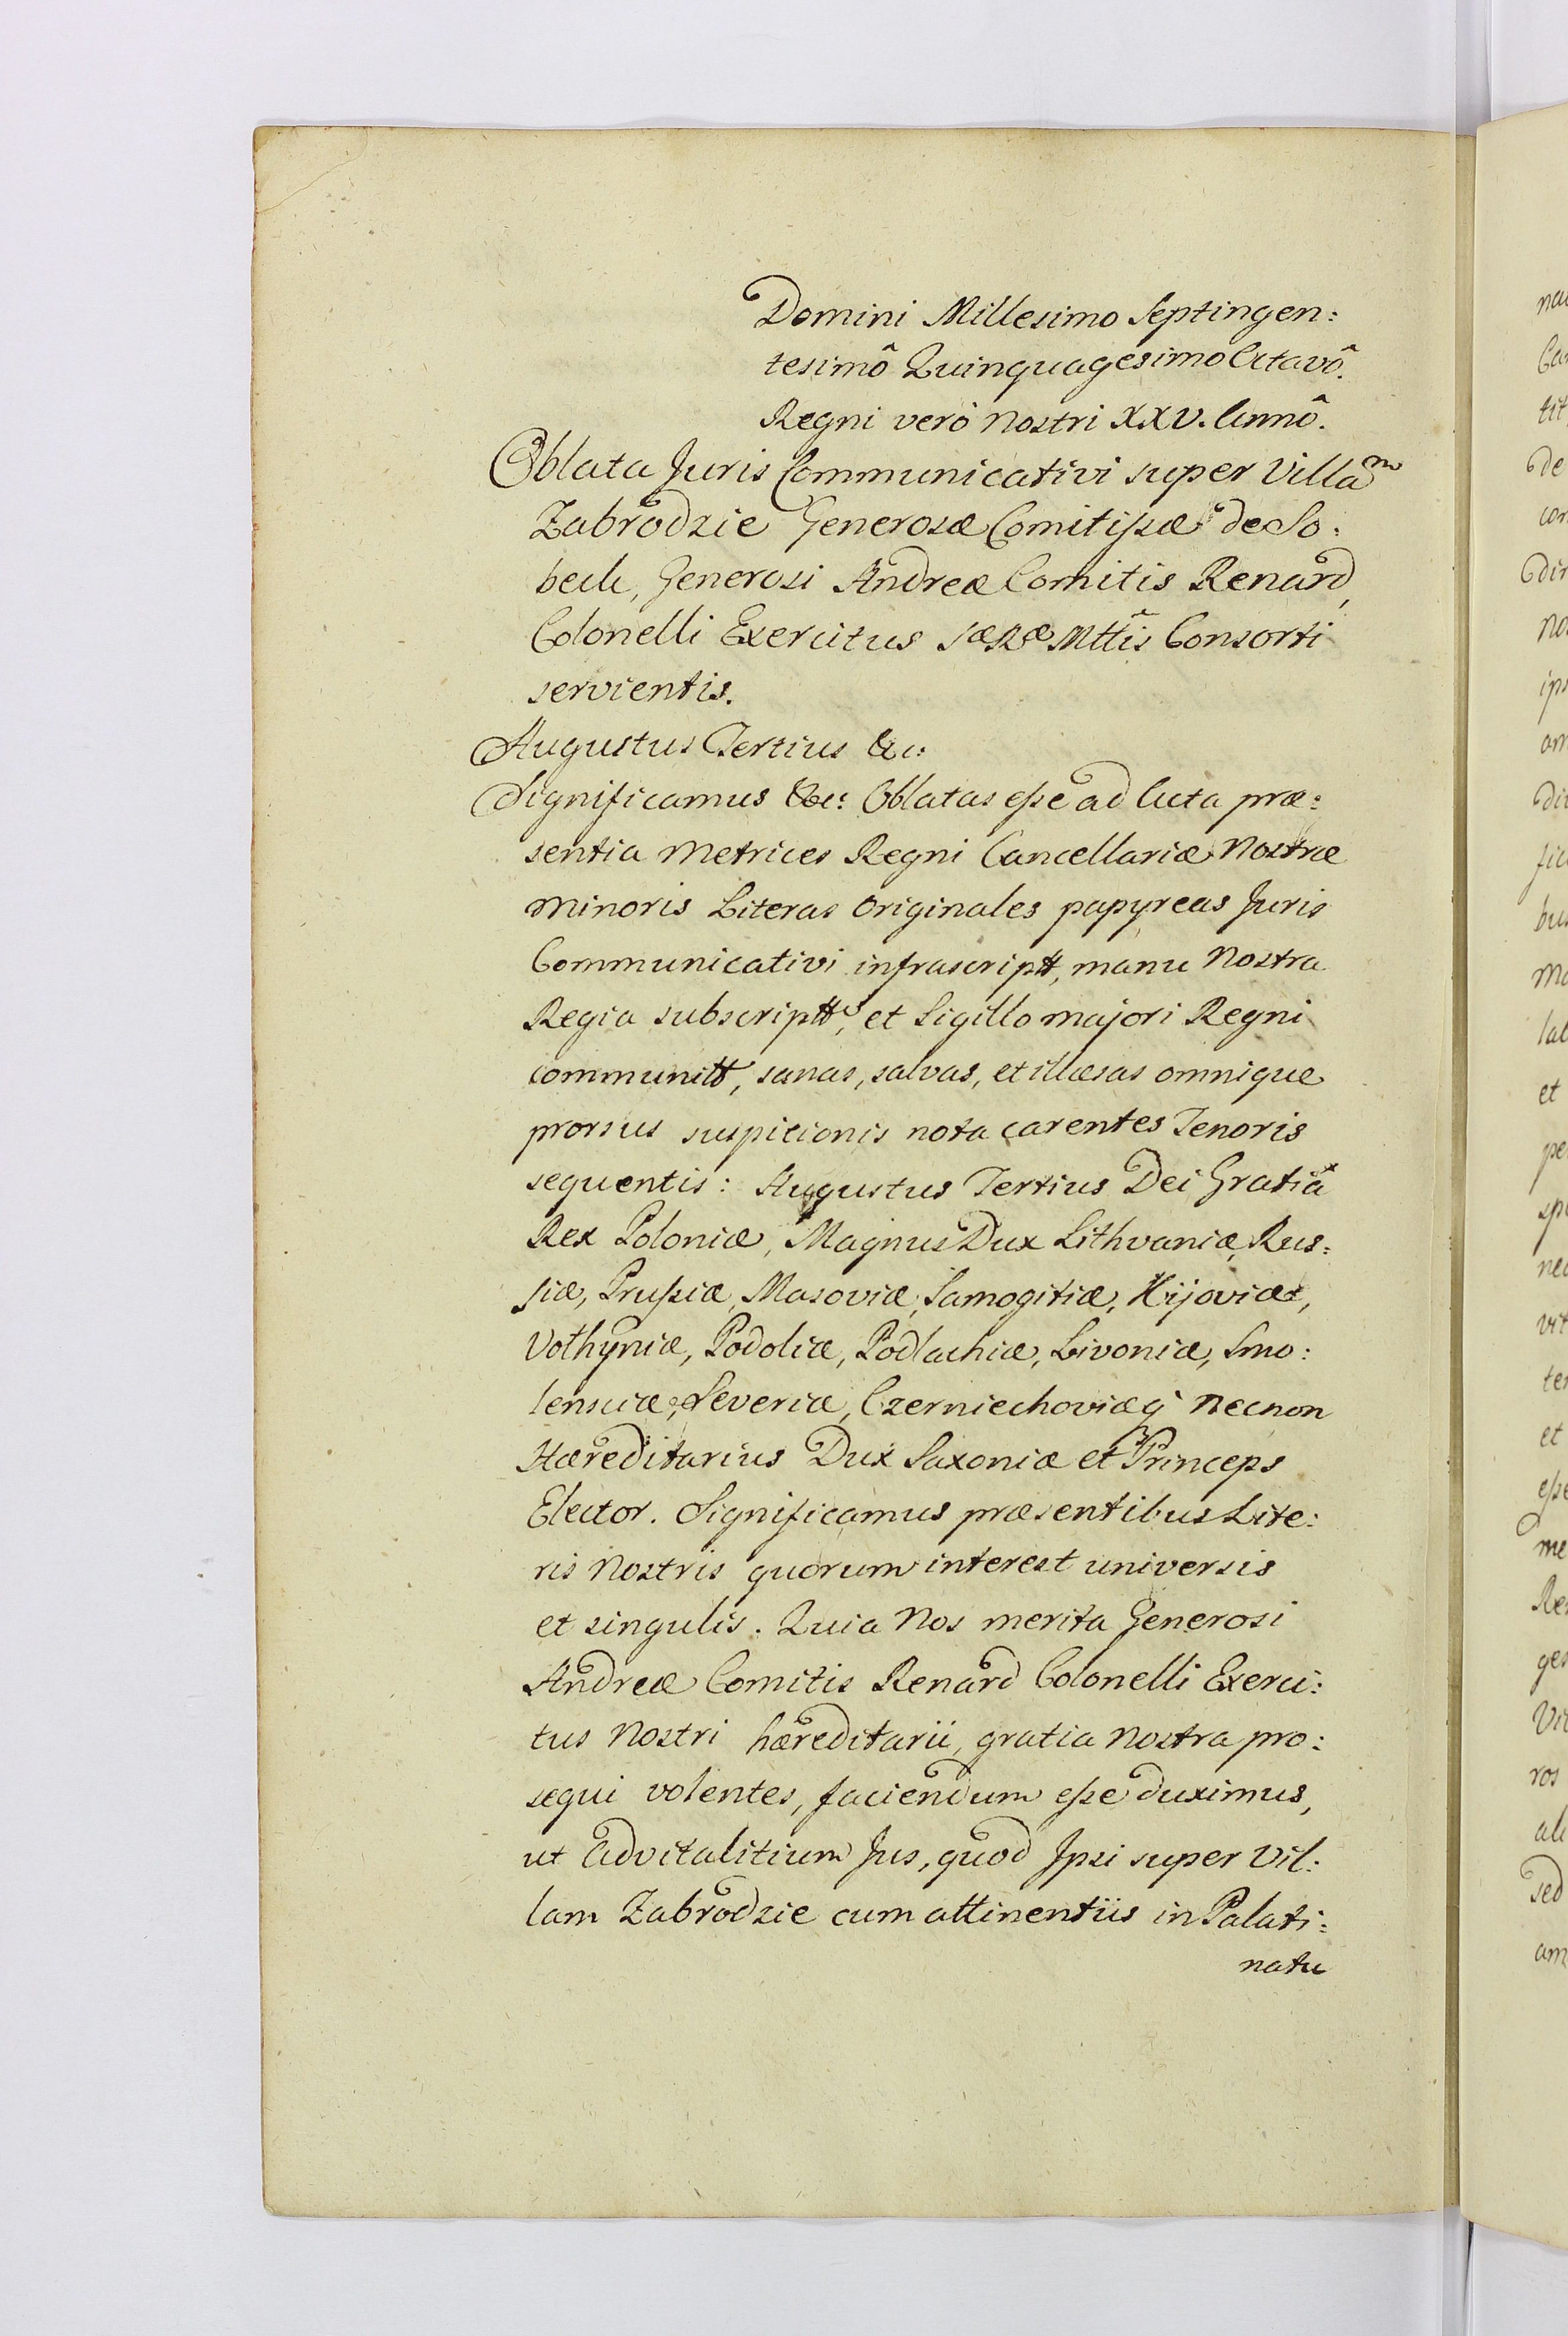 Domini Millesimo Septingen:
tesimô Quinquagesimo Octavô.
Regni verò Nostri XXV. Annô.
Oblata Juris Communicativi super Villam
Zabrodzie Generosæ Comitissæ de So:
beck, Generosi Andreæ Comitis Renard,
Colonelli Exercitus Sæ Ræ Mttis Consorti
servientis.
Augustus Tertius &c:
Significamus &c: Oblatas esse ad Acta præ:
sentia Metrices Regni Cancellariæ Nostræ
Minoris Literas Originales papyreas Juris
Communicativi infrascriptt, manu Nostra
Regia subscriptts, et Sigillo majori Regni
communitt, sanas, salvas, et illæsas omnique
prorsus suspicionis nota carentes Tenoris
sequentis: Augustus Tertius Dei Gratiâ
Rex Poloniæ, Magnus Dux Lithvaniæ, Rus:
siæ, Prussiæ, Masoviæ, Samogitiæ, Kijoviæ,
Volhyniæ, Podoliæ, Podlachiæ, Livoniæ, Smo:
lensciæ, Severiæ, Czerniechoviæq Necnon
Hæreditarius Dux Saxoniæ et Princeps
Elector. Significamus præsentibus Lite:
ris Nostris quorum interest universis
et singulis. Quia Nos merita Generosi
Andreæ Comitis Renard Colonelli Exerci:
tus Nostri hæreditarii, gratia Nostra pro:
sequi volentes, faciendum esse duximus,
ut Advitalitium Jus, quod Ipsi super Vil:
lam Zabrodzie cum attinentiis in Palati:
natu